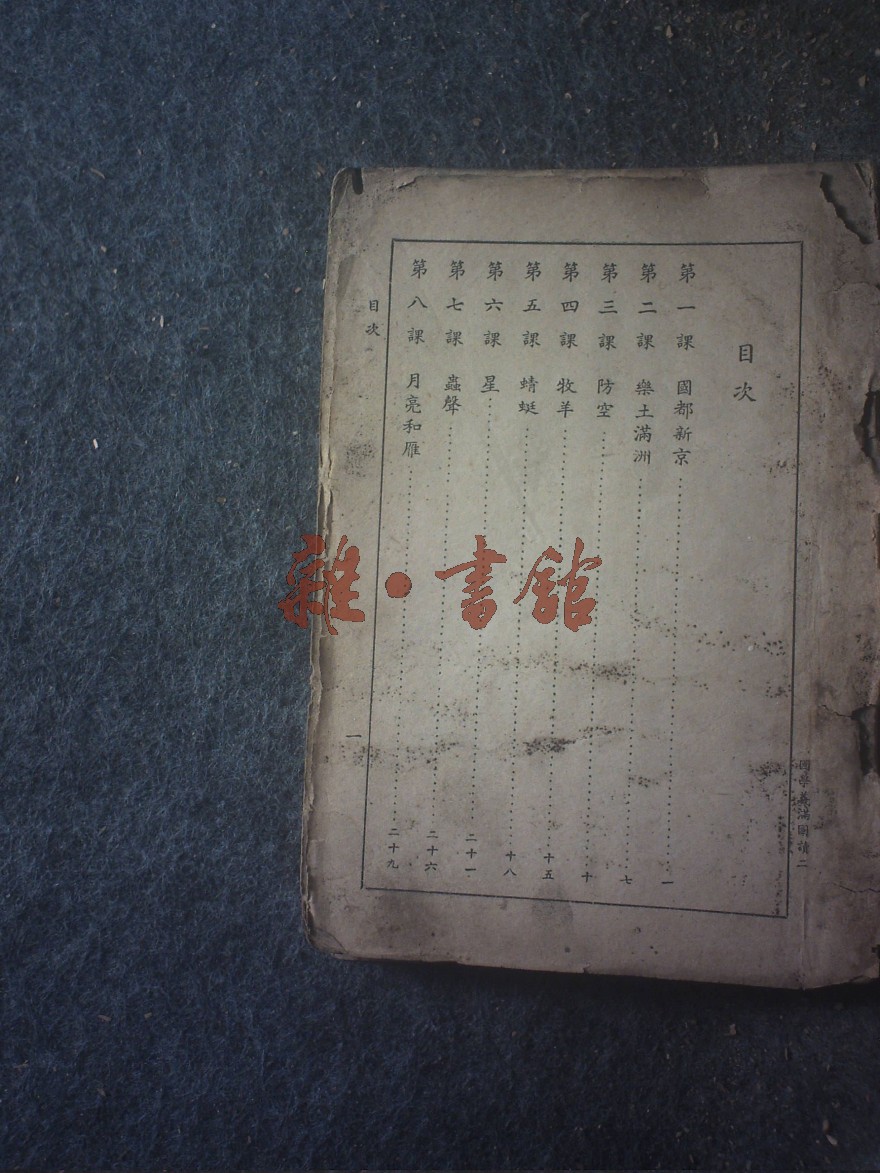 目次
第一課 國都新京 一
第二課 樂土滿洲 七
第三課 防空 十
第四課 牧羊 十五
第五課 蜻蜓 十八
第六課 星 二十一
第七課 蟲聲 二十六
第八課 月亮和雁 二十九
目次
一
雜·書館